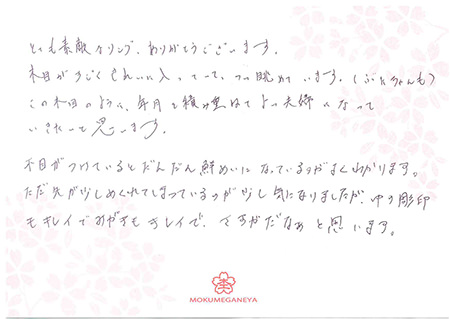 とても素敵なリング、ありがとうございます。
木目がすごくきれいに入っていて、つい眺めています。(ふたりとも)
この木目のように、年月を積み重ねてよい夫婦になって
いきたいと思います。
木目がつけているとだんだん鮮めいになっているのがよくわかります。
ただ先が少しめくれてしまっているのが少し気になりましたが、中の彫印
もキレイでみがきもキレイで、さすがだなぁと思います。
MOKUMEGANEYA